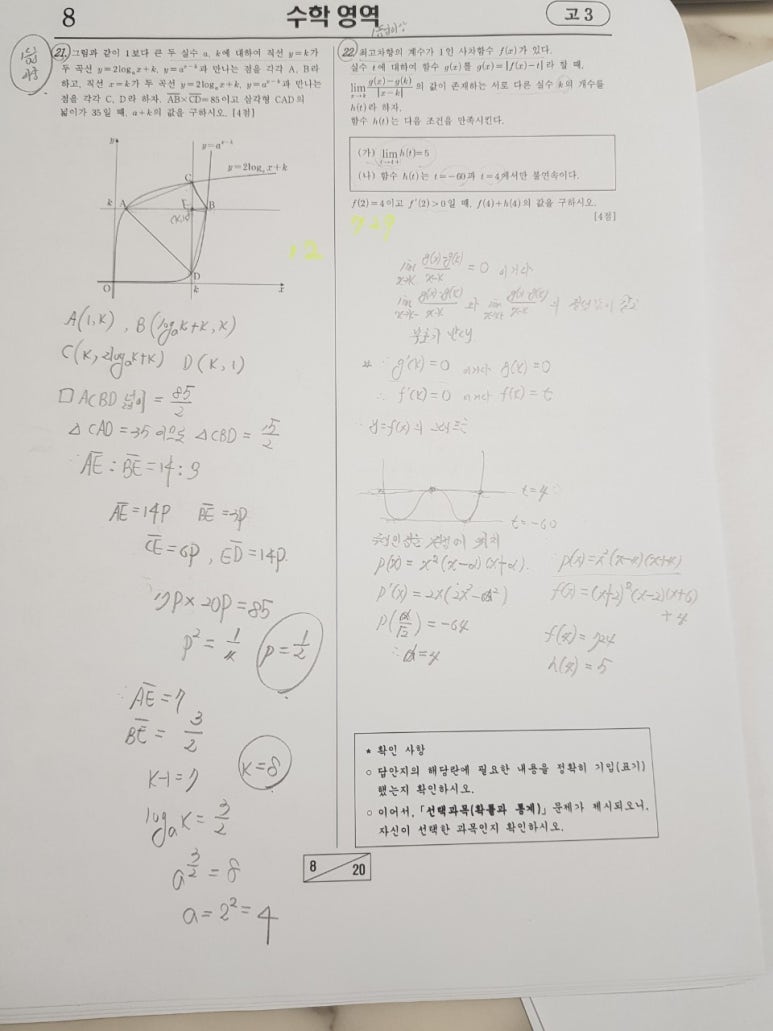 8
수학 영역
고 3
21. 그림과 같이 1보다 큰 두 실수 a, k에 대하여 직선 y=k가
두 곡선 y=2log_a x+k, y=a^{x-k}과 만나는 점을 각각 A, B라
하고, 직선 x=k가 두 곡선 y=2log_a x+k, y=a^{x-k}과 만나는
점을 각각 C, D라 하자. AB×CD=85이고 삼각형 CAD의
넓이가 35일 때, a+k의 값을 구하시오. [4점]
y
y=a^{x-k}
y=2log_a x+k
C
k A E B
(k,k)
D
O k x
A(1,k), B(log_a k+k, k)
C(k, 2log_a k+k) D(k, 1)
□ACBD 넓이 = 85/2
△CAD=35 이므로 △CBD = 15/2
AE : BE = 14 : 3
AE=14p BE=3p
CE=6p, ED=14p
17p×20p=85
p²=1/4 p=1/2
∴ AE=7
BE=3/2
k-1=7 k=8
log_a k=3/2
a^{3/2}=8
a=2²=4
22. 최고차항의 계수가 1인 사차함수 f(x)가 있다.
실수 t에 대하여 함수 g(x)를 g(x)=|f(x)-t|라 할 때,
lim_{x→k} (g(x)-g(k))/|x-k| 의 값이 존재하는 서로 다른 실수 k의 개수를
h(t)라 하자.
함수 h(t)는 다음 조건을 만족시킨다.
(가) lim_{t→4+} h(t)=5
(나) 함수 h(t)는 t=-60과 t=4에서만 불연속이다.
f(2)=4이고 f'(2)>0일 때, f(4)+h(4)의 값을 구하시오.
[4점]
lim_{x→k} (g(x)-g(k))/(x-k) = 0 이거나
lim_{x→k-} (g(x)-g(k))/(x-k) 와 lim_{x→k+} (g(x)-g(k))/(x-k) 의 절댓값이 같고
부호가 반대
∴ g'(k)=0 이거나 g(k)=0
∴ f'(k)=0 이거나 f(k)=t
y=f(x)의
t=4
t=-60
p(x)=x²(x-α)(x+α)
p'(x)=2x(2x²-α²)
p(α/√2)=-64
∴ α=4
p(x)=x²(x-4)(x+4)
f(x)=(x+2)²(x-2)(x+6)
+4
f(4)=724
h(4)=5
* 확인 사항
○ 답안지의 해당란에 필요한 내용을 정확히 기입(표기)
했는지 확인하시오.
○ 이어서, 「선택과목(확률과 통계)」 문제가 제시되오니,
자신이 선택한 과목인지 확인하시오.
8
20